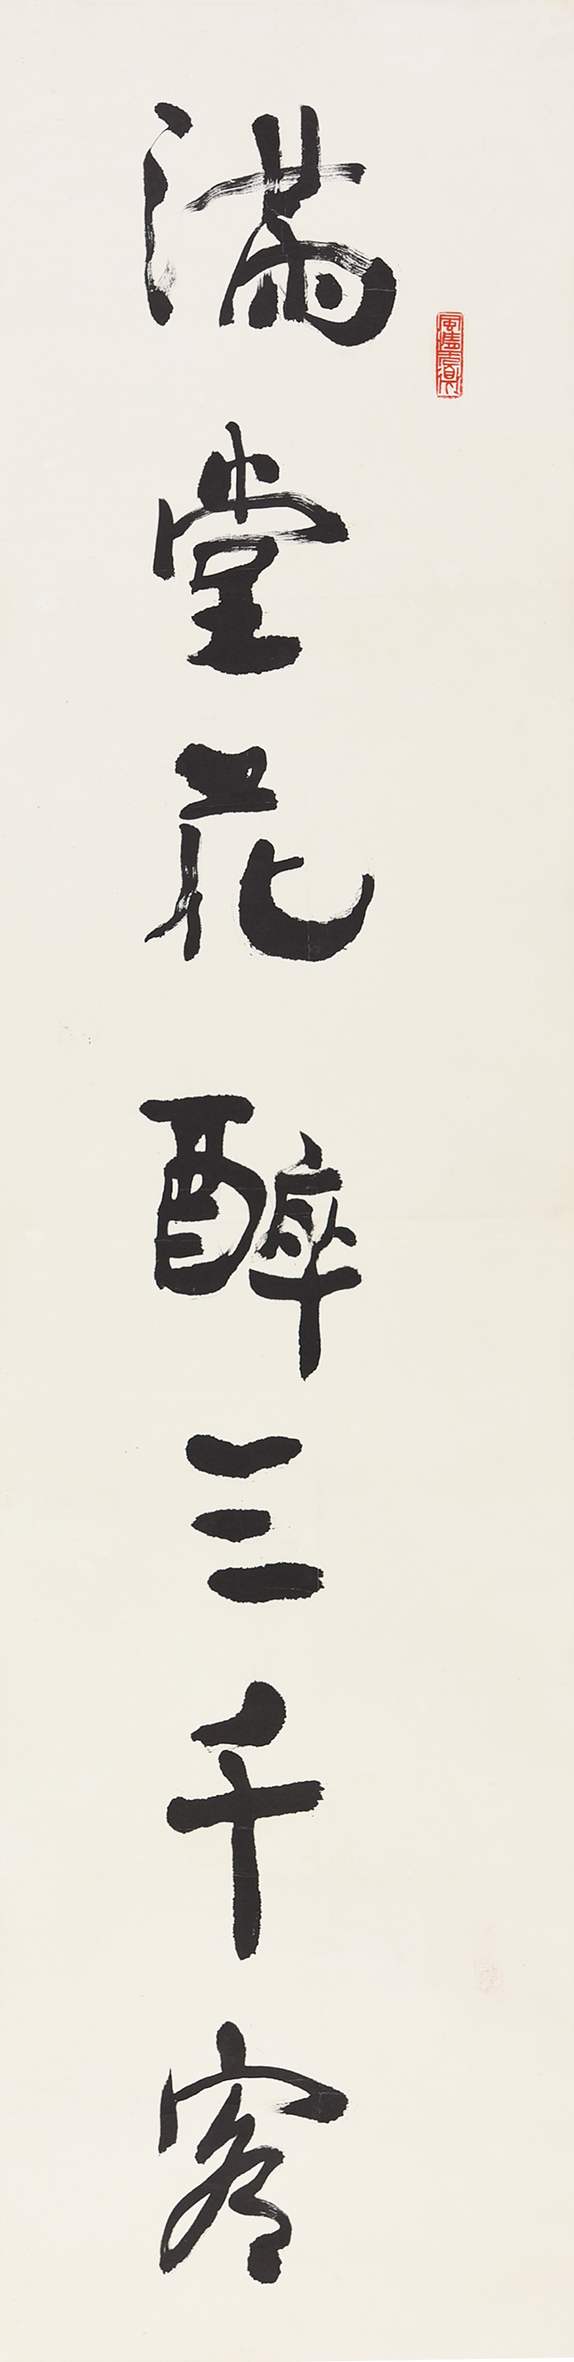 滿堂花醉三千客